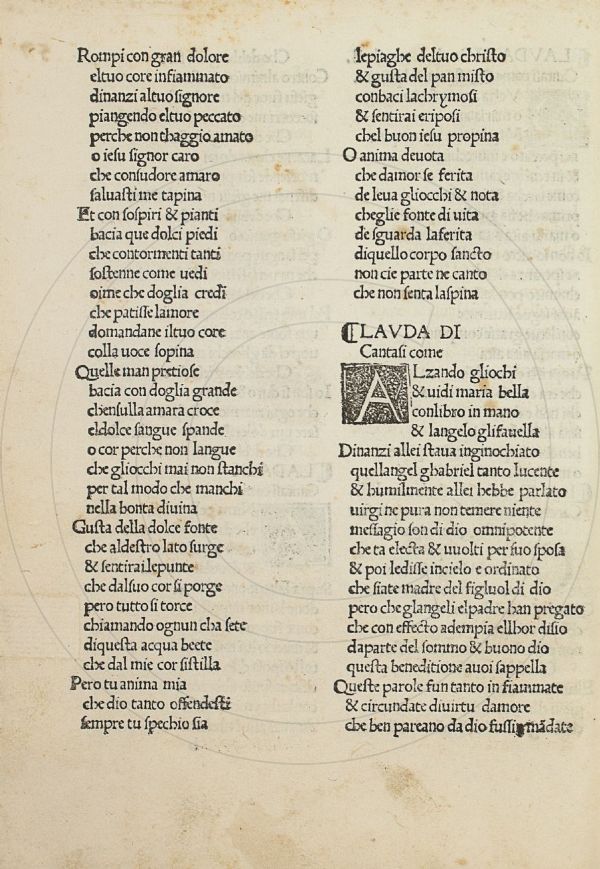 Rompi con gran dolore
eltuo core infiammato
dinanzi altuo signore
piangendo eltuo peccato
perche non thaggio amato
o iesu signor caro
che consudore amaro
saluasti me tapina
Et con sospiri & pianti
bacia que dolci piedi
che contormenti tanti
sostenne come uedi
oime che doglia credi
che patisse lamore
domandane iltuo core
colla uoce sopina
Quelle man pretiose
bacia con doglia grande
chensulla amara croce
eldolce sangue spande
o cor perche non langue
che gliocchi mai non stanchi
per tal modo che manchi
nella bonta diuina
Gusta della dolce fonte
che aldestro lato surge
& sentirai lepunte
che dalsuo cor si porge
pero tutto si torce
chiamando ognun cha sete
diquesta acqua beete
che dal mie cor sistilla
Pero tu anima mia
che dio tanto offendesti
sempre tu spechio sia
lepiaghe deltuo christo
& gusta del pan misto
conbaci lachrymosi
& sentirai eriposi
chel buon iesu propina
O anima deuota
che damor se ferita
de leua gliocchi & nota
cheglie fonte di uita
de sguarda laferita
diquello corpo sancto
non cie parte ne canto
che non senta laspina
CLAVDA DI
Cantasi come
ALzando gliochi
& uidi maria bella
conlibro in mano
& langelo glifauella
Dinanzi allei staua inginochiato
quellangel ghabriel tanto lucente
& humilmente allei hebbe parlato
uirgine pura non temere niente
messagio son di dio omnipotente
che ta electa & uuolti per suo sposa
& poi ledisse incielo e ordinato
che siate madre del figluol di dio
pero che glangeli elpadre han pregato
che con effecto adempia ellhor disio
daparte del sommo & buono dio
questa beneditione auoi sappella
Queste parole fun tanto infiammate
& circundate diuirtu damore
che ben pareano da dio fussin mādate